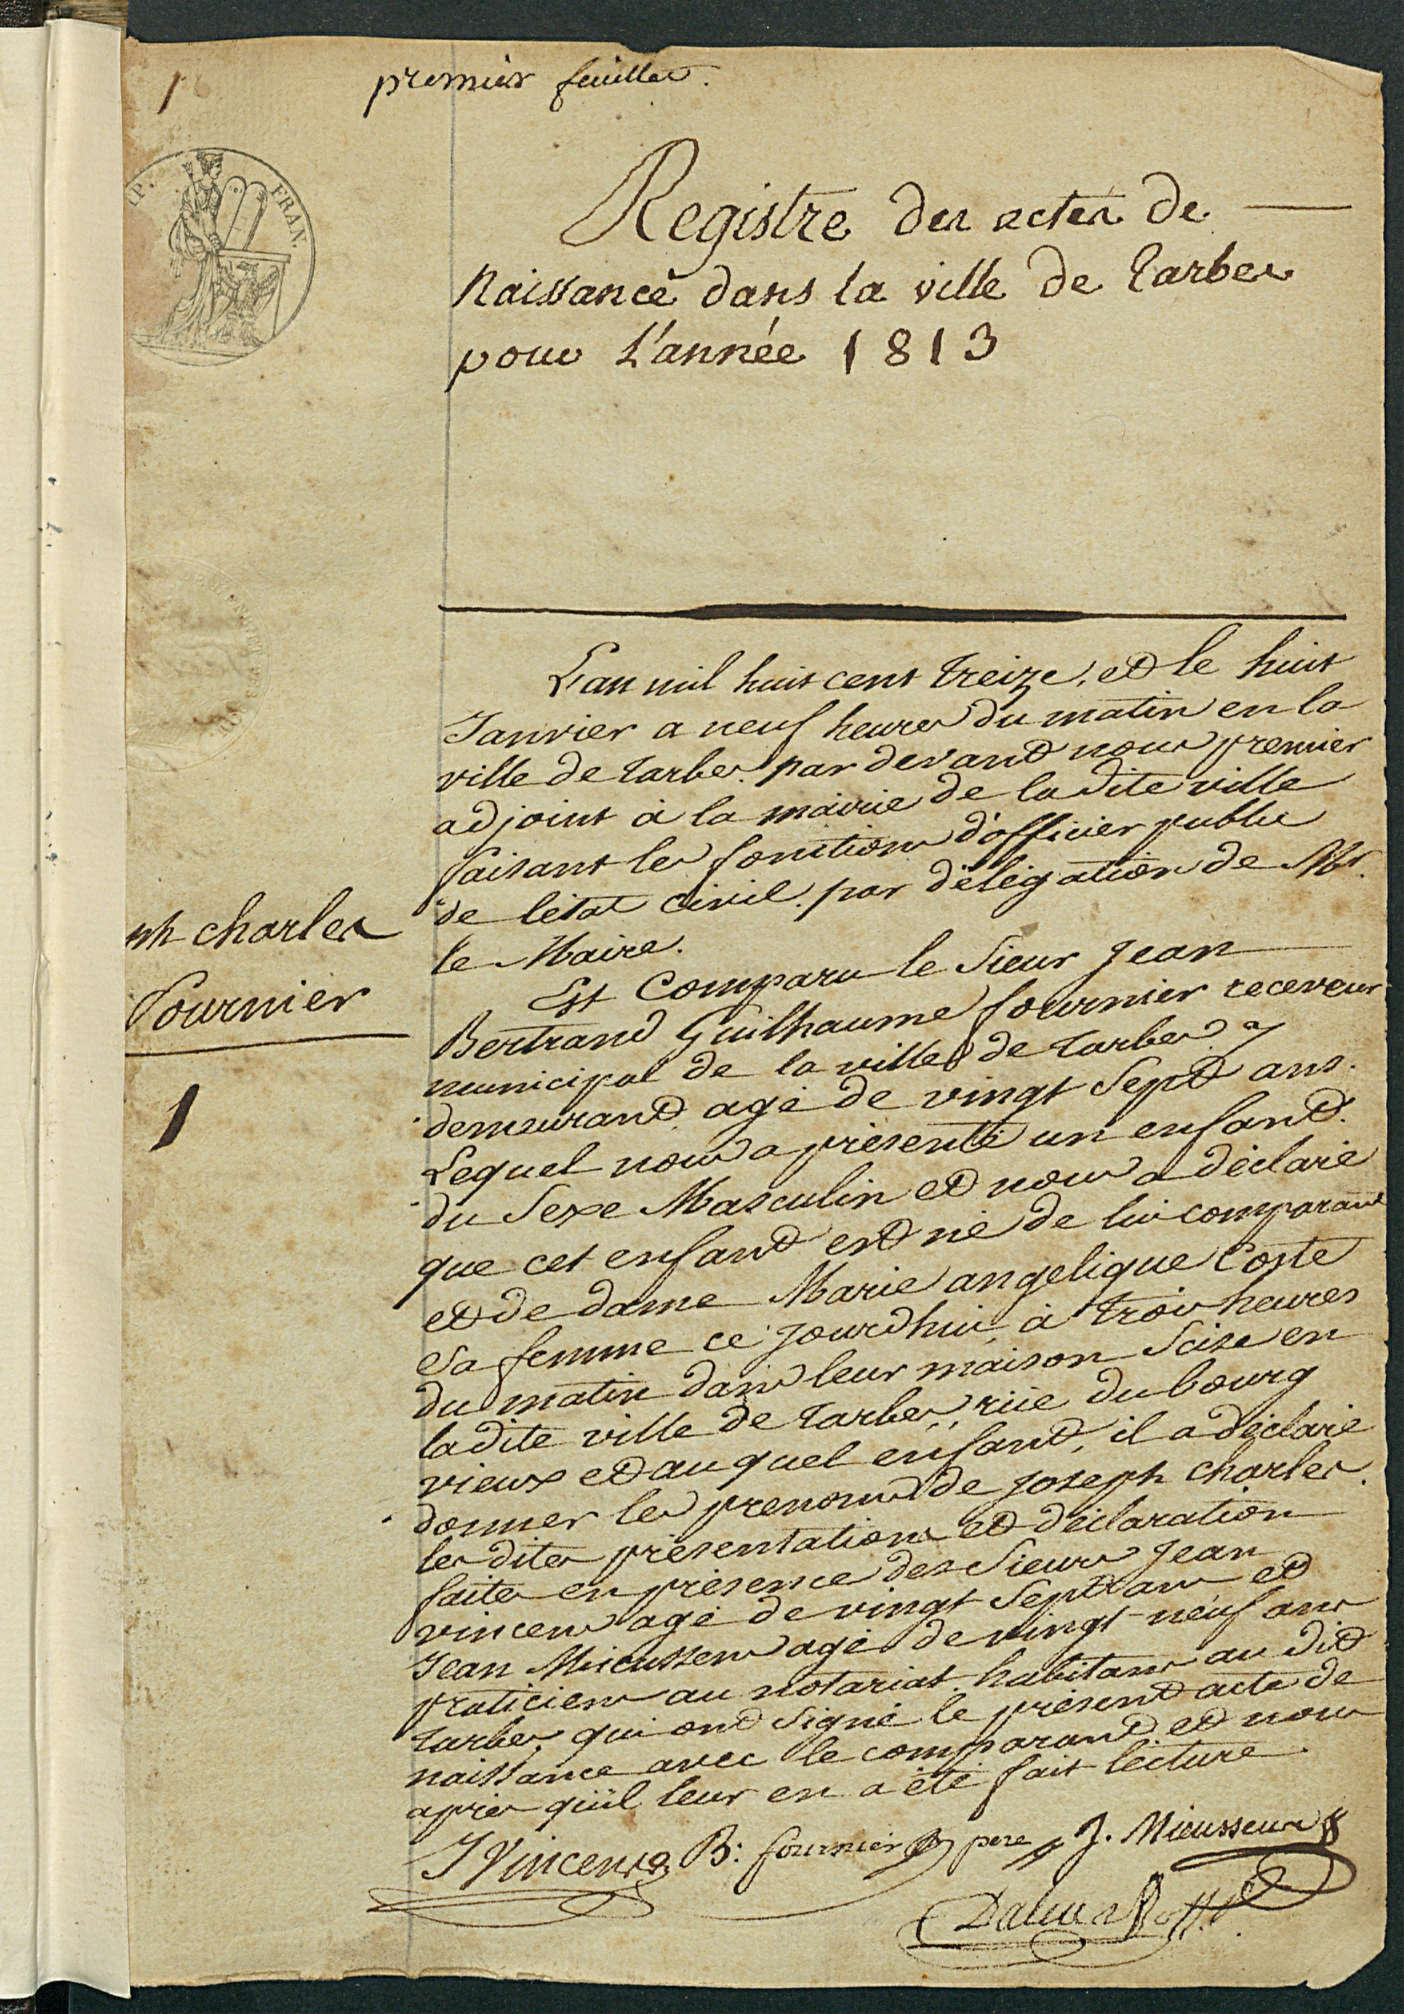 1
premier feuillet.
P. FRAN.
Registre des actes de
Naissance dans la ville de Tarbes
pour L'année 1813
L'an mil huit cent treize, et le huit
Janvier a neuf heures du matin en la
ville de Tarbes. par devant nous premier
adjoint à la mairie de la dite ville
faisant les fonctions d'officier public
de l'état civil. par délégation de Mr.
le Maire.
Est Comparu le Sieur Jean
Bertrand Guilhaume fournier receveur
municipal de la ville de Tarbes y
demeurant agé de vingt Sept ans.
Lequel nous a présenté un enfant
du Sexe Masculin et nous a déclaré
que cet enfant est né de lui comparant
et de dame Marie angelique Coste
Sa femme ce jourdhui, à trois heures
du matin dans leur maison Scise en
la dite ville de Tarbes, rüe du bourg
vieux et auquel enfant, il a déclaré
donner les prenoms de Joseph Charles.
les dites présentations et déclaration
faites en présence des Sieurs Jean
vincens agé de vingt Sept ans et
Jean Mieussens agé de vingt-neuf ans
praticiens au notariat habitans au dit
Tarbes. qui ont Signé le présent acte de
naissance avec le comparant et nous
après qüil leur en a été fait lecture.
JVincens B: fournier pere J. Mieussens
ph charles
fournier
1